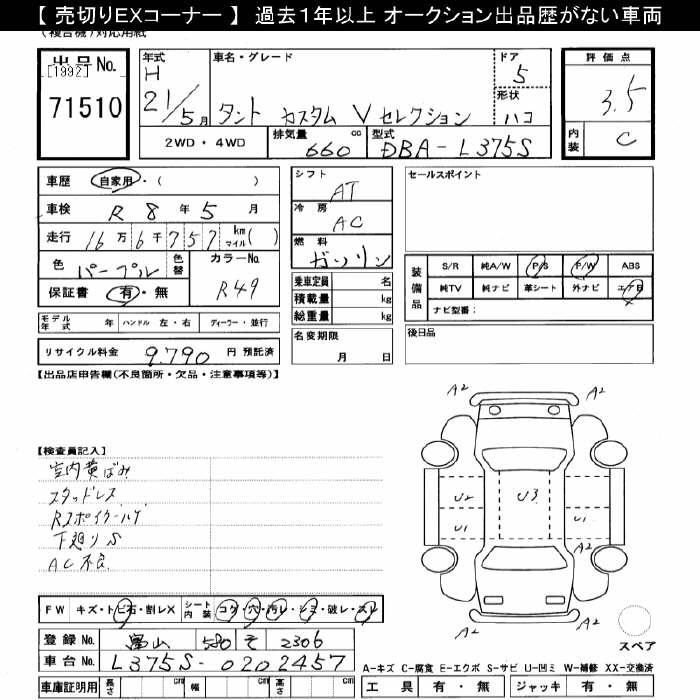 【 売切りEXコーナー 】 過去１年以上 オークション出品歴がない車両
(複合機)対応用紙
出品No.
[1992]
71510
年式
H
21/5月
車名・グレード
タント カスタム V セレクション
ドア
5
形状
ハコ
評価点
3.5
内装
C
2WD・4WD
排気量
660
cc
型式
DBA-L375S
車歴
自家用・( )
車検
R 8年 5月
走行
16万6千757
km
マイル( )
色
パープル
色替
カラーNo.
R49
保証書
有・無
シフト
AT
冷房
AC
燃料
ガソリン
乗車定員 名
積載量 kg
総重量 kg
セールスポイント
装備品
S/R 純A/W P/S P/W ABS
純TV 純ナビ 革シート 外ナビ エアB
ナビ型番:
モデル年式 年 ハンドル 左・右 ディーラー・並行
リサイクル料金 9,790 円 預託済
名変期限
月 日
後日品
【出品店申告欄(不良箇所・欠品・注意事項等)】
【検査員記入】
室内黄ばみ
スタッドレス
下廻りS
AC不良
A2 A2
U2 U3
U1 U1
A2
A2 A2
スペア
FW キズ・トビ石・割レX
シート内装 コゲ・穴・汚レ・シミ・破レ・スレ
登録No. 富山 580 そ 2306
車台No. L375S-0202457
車庫証明用 長さ cm 幅 cm 高さ cm
A-キズ C-腐食 E-エクボ S-サビ U-凹ミ W-補修 XX-交換済
工具 有・無 ジャッキ 有・無